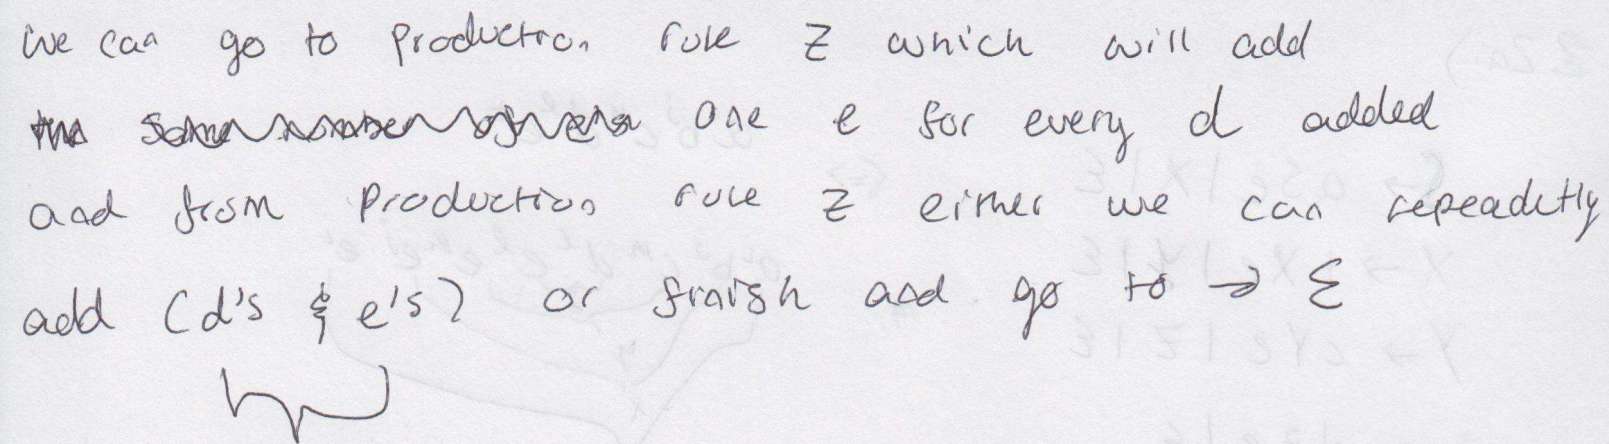 we can go to production rule Z which will add
one e for every d added
and from production rule Z either we can repeadetly
add (d's & e's) or finish and go to → ε